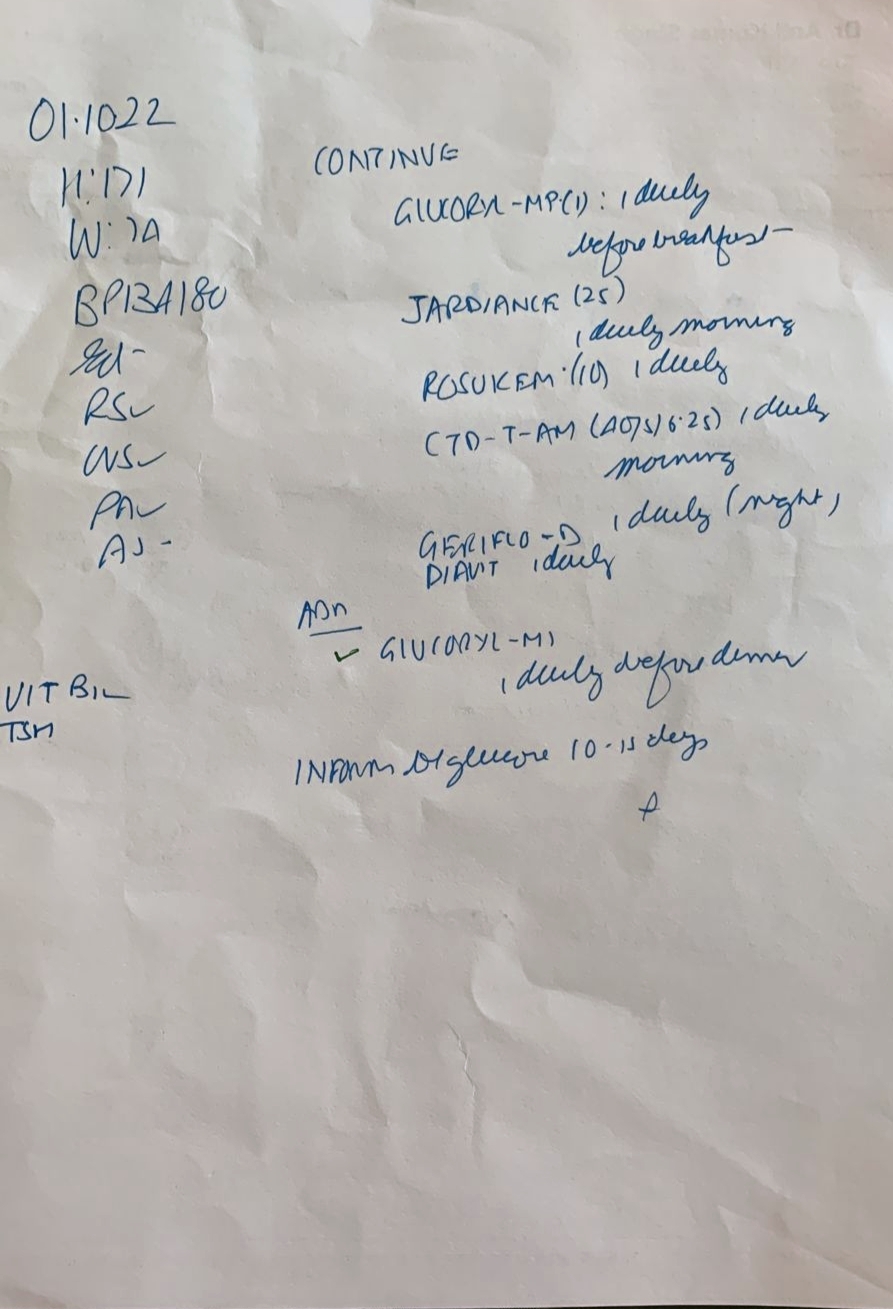 01.1022
H: 171
W: 74
BP134/80
RS✓
CVS✓
PA✓
AJ -
VIT B12
TSH
CONTINUE
GLUCORYL-MP(1): 1 daily
before breakfast
JARDIANCE (25)
1 daily morning
ROSUKEM (10) 1 daily
CTD-T-AM (40/5/6.25) 1 daily
morning
GERIFLO-D 1 daily (night)
DIAVIT 1 daily
ADD
✓ GLUCORYL-M1
1 daily before dinner
INFORM bl glucose 10-15 days